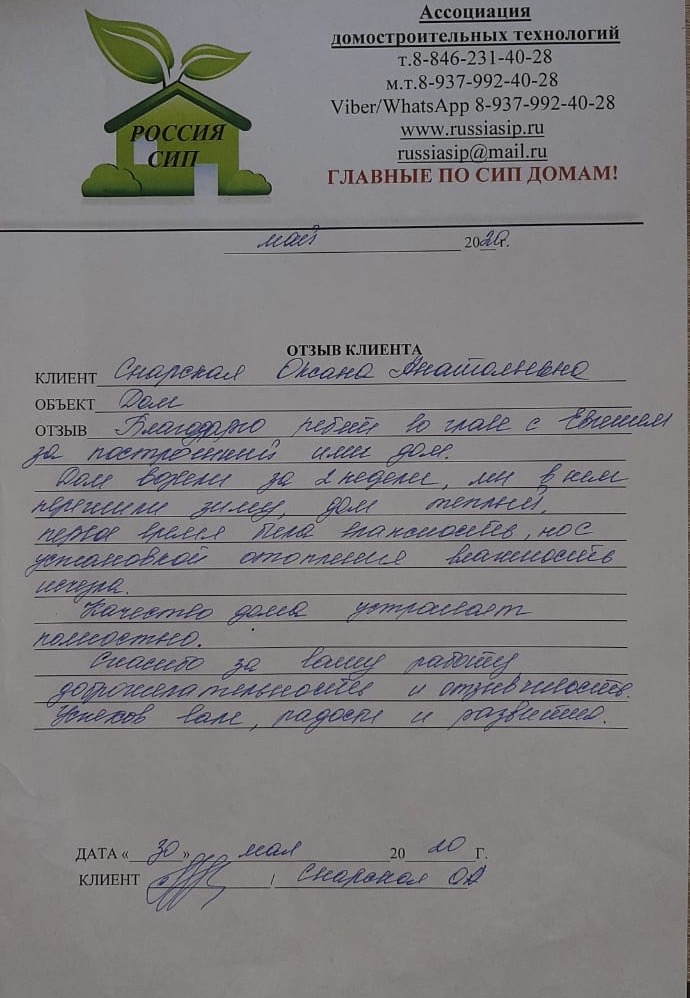 Ассоциация
домостроительных технологий
т.8-846-231-40-28
м.т.8-937-992-40-28
Viber/WhatsApp 8-937-992-40-28
www.russiasip.ru
russiasip@mail.ru
ГЛАВНЫЕ ПО СИП ДОМАМ!
РОССИЯ
СИП
май 2020г.
ОТЗЫВ КЛИЕНТА
КЛИЕНТ Снарская Оксана Анатольевна
ОБЪЕКТ Дом
ОТЗЫВ Благодарю ребят во главе с Евгением
за построенный ими дом.
Дом возвели за 2 недели, мы в нем
пережили зиму, дом теплый,
первое время была влажность, но с
установкой отопления влажность
исчезла.
Качество дома устраивает
полностью.
Спасибо за вашу работу,
доброжелательность и отзывчивость.
Успехов вам, радости и развития.
ДАТА «30» мая 2020 Г.
КЛИЕНТ / Снарская ОА